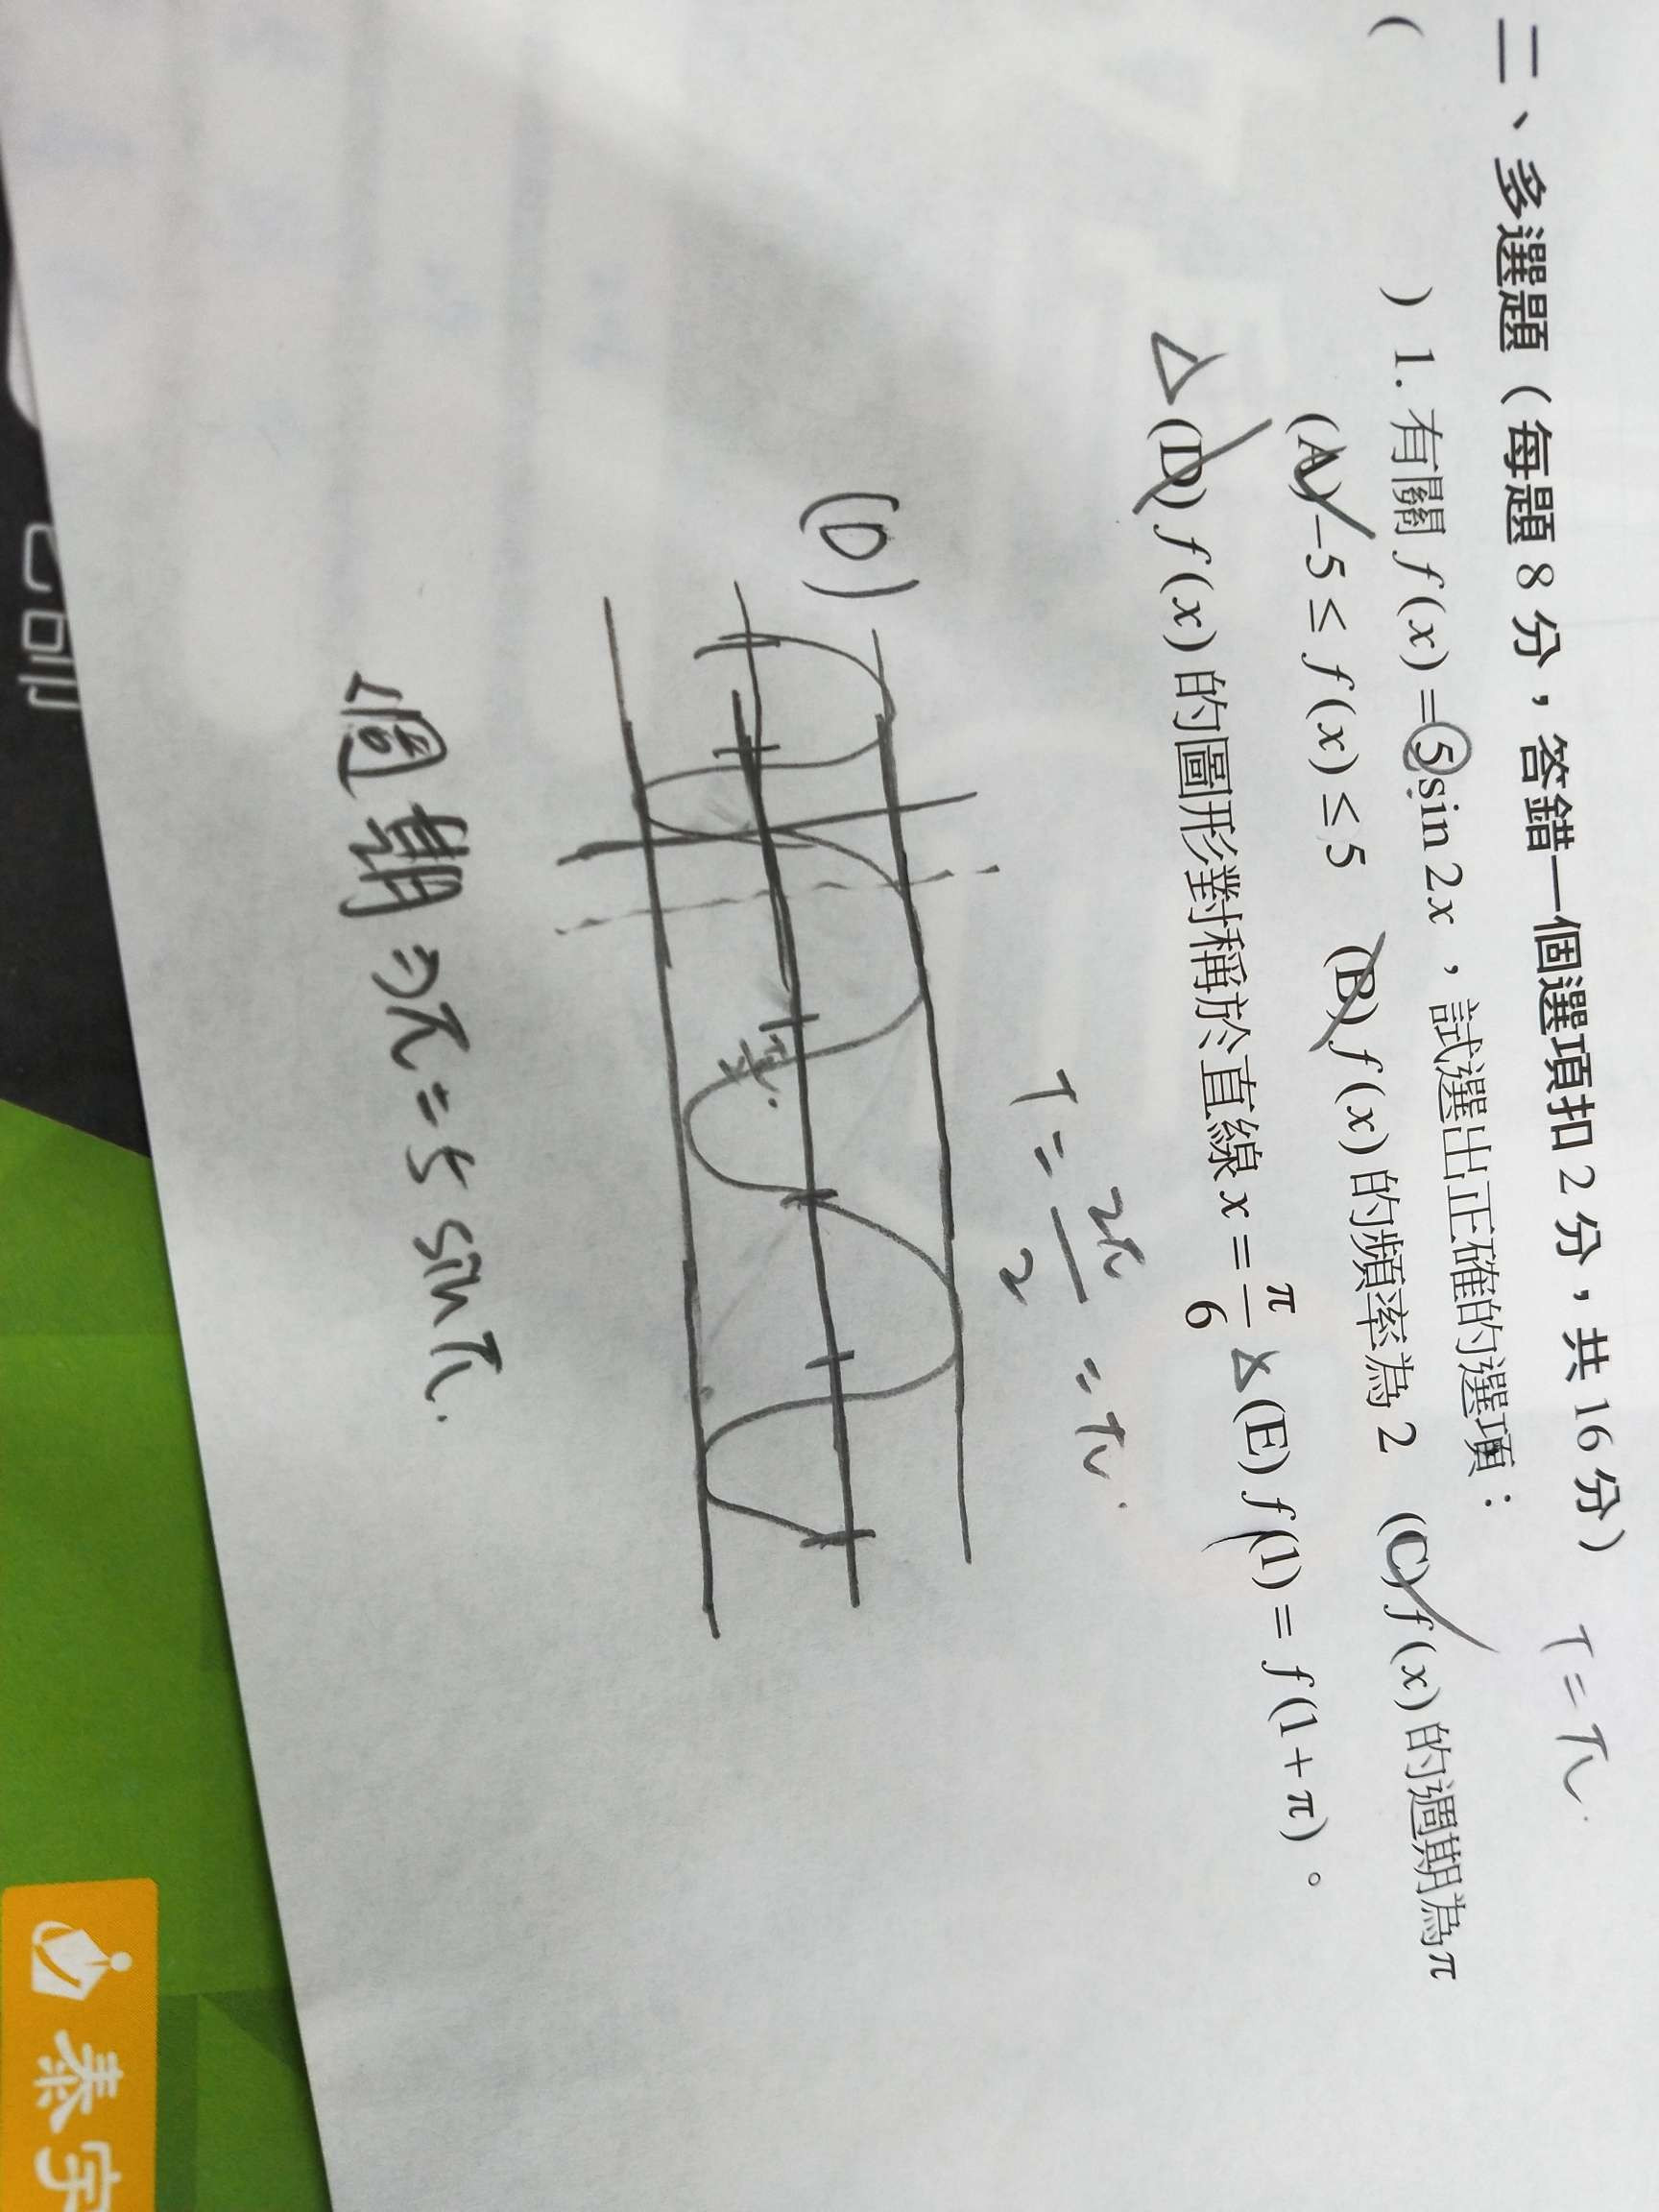 二、多選題（每題 8 分，答錯一個選項扣 2 分，共 16 分） T=π.
(　　) 1. 有關 f(x)=5sin2x，試選出正確的選項：
(A) -5≤f(x)≤5 (B) f(x)的頻率為2 (C) f(x)的週期為π
△(D) f(x)的圖形對稱於直線x=π/6 (E) f(1)=f(1+π)。
T=2π/2=π.
(D)
週期 π=5sinπ.
泰宇